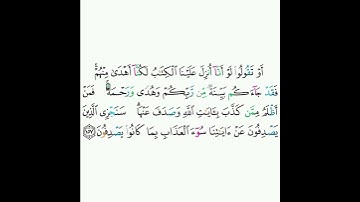 أَوْ تَقُولُوا۟ لَوْ أَنَّآ أُنزِلَ عَلَيْنَا ٱلْكِتَٰبُ لَكُنَّآ أَهْدَىٰ مِنْهُمْ ۚ
فَقَدْ جَآءَكُم بَيِّنَةٌ مِّن رَّبِّكُمْ وَهُدًى وَرَحْمَةٌ ۚ فَمَنْ
أَظْلَمُ مِمَّن كَذَّبَ بِـَٔايَٰتِ ٱللَّهِ وَصَدَفَ عَنْهَا ۗ سَنَجْزِى ٱلَّذِينَ
يَصْدِفُونَ عَنْ ءَايَٰتِنَا سُوٓءَ ٱلْعَذَابِ بِمَا كَانُوا۟ يَصْدِفُونَ ١٥٧